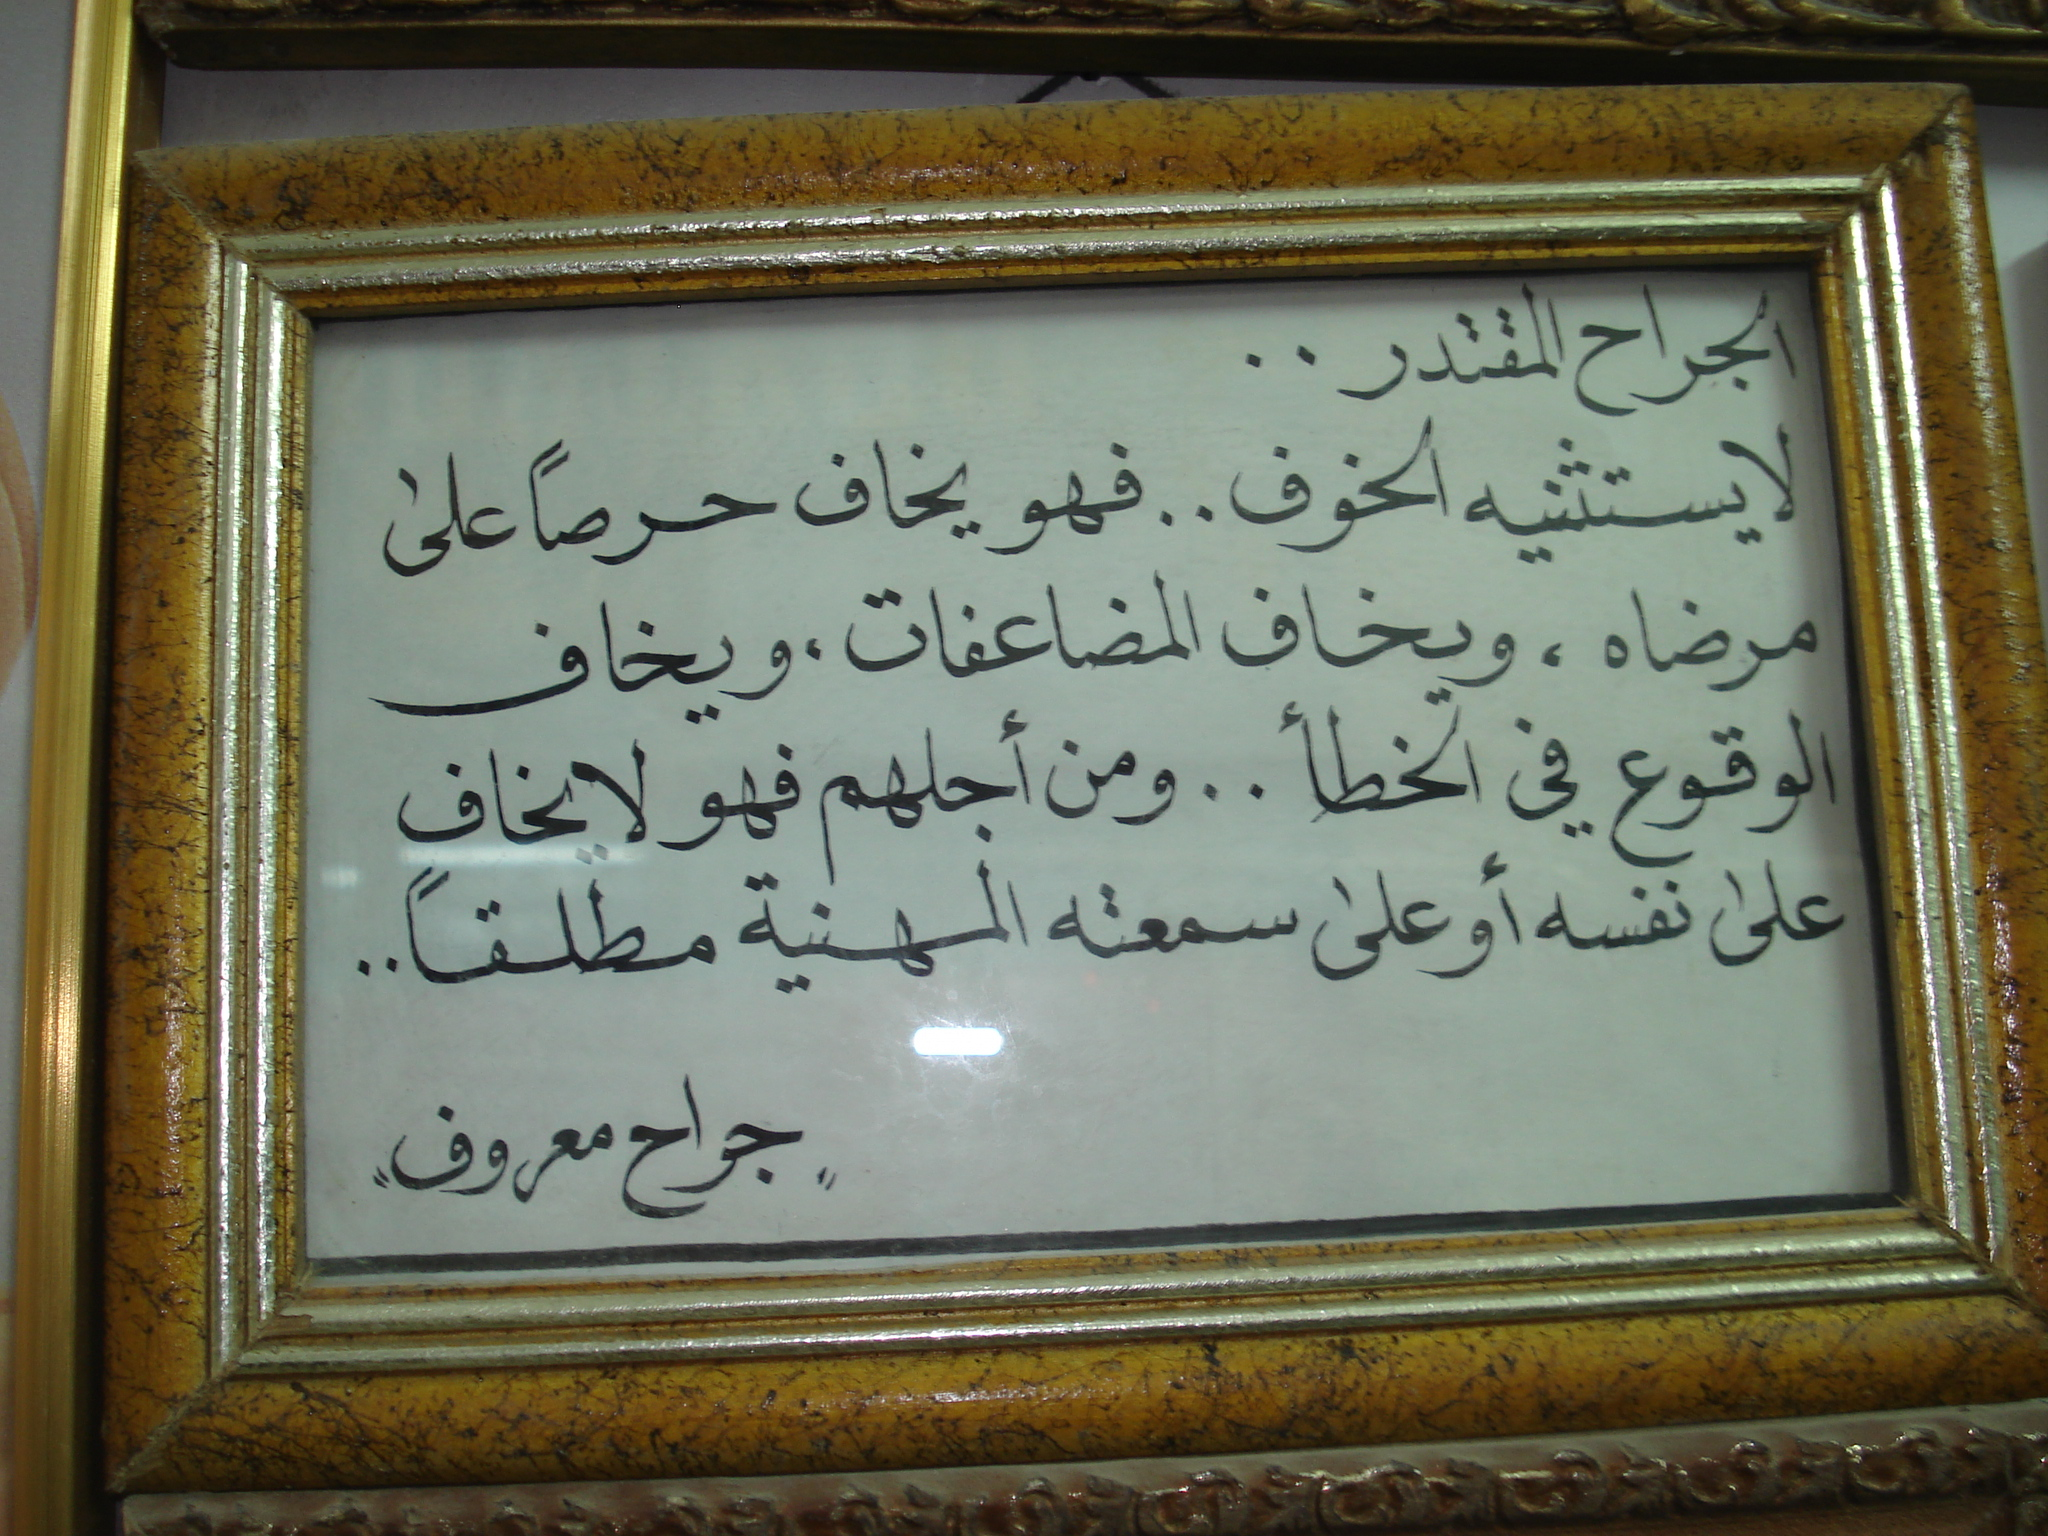 الجراح المقتدر ..
لا يستثنيه الخوف .. فهو يخاف حرصاً على
مرضاه ، ويخاف المضاعفات ، ويخاف
الوقوع في الخطأ .. ومن أجلهم فهو لا يخاف
على نفسه أو على سمعته المهنية مطلقاً ..
" جراح معروف "